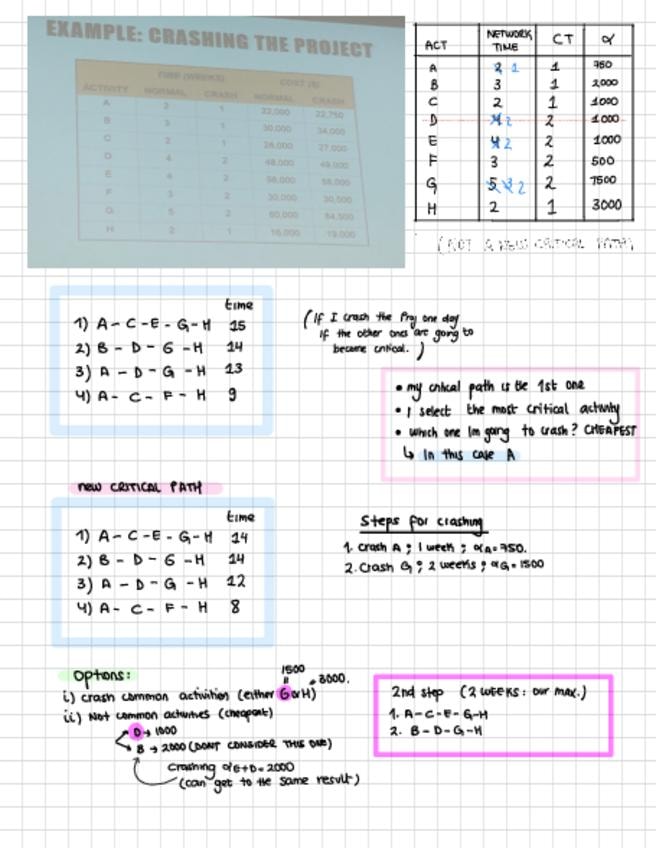 EXAMPLE: CRASHING THE PROJECT
TIME (WEEKS) COST ($)
ACTIVITY NORMAL CRASH NORMAL CRASH
A 2 1 22,000 22,750
B 3 1 30,000 34,000
C 2 1 26,000 27,000
D 4 2 48,000 49,000
E 4 2 56,000 58,000
F 3 2 30,000 30,500
G 5 2 80,000 84,500
H 2 1 16,000 19,000
ACT NETWORK TIME CT α
A 2 1 1 750
B 3 1 2,000
C 2 1 1000
D 4 2 2 1000
E 4 2 2 1000
F 3 2 500
G 5 3 2 2 1500
H 2 1 3000
(NOT A NEW CRITICAL PATH)
time
1) A - C - E - G - H 15
2) B - D - G - H 14
3) A - D - G - H 13
4) A - C - F - H 9
(If I crash the Proj one day
if the other ones are going to
become critical.)
• my critical path is the 1st one
• I select the most critical activity
• which one Im going to crash? CHEAPEST
↳ In this case A
new CRITICAL PATH
time
1) A - C - E - G - H 14
2) B - D - G - H 14
3) A - D - G - H 12
4) A - C - F - H 8
Steps for crashing
1. Crash A ; 1 week ; αA = 750.
2. Crash G ; 2 weeks ; αG = 1500
Options:
1500
i) crash common activities (either G or H) 3000.
ii) Not common activities (cheapest)
D → 1000
B → 2000 (DONT CONSIDER THIS ONE)
Crashing αE+D = 2000
(can get to the same result)
2nd step (2 weeks: our max.)
1. A - C - E - G - H
2. B - D - G - H